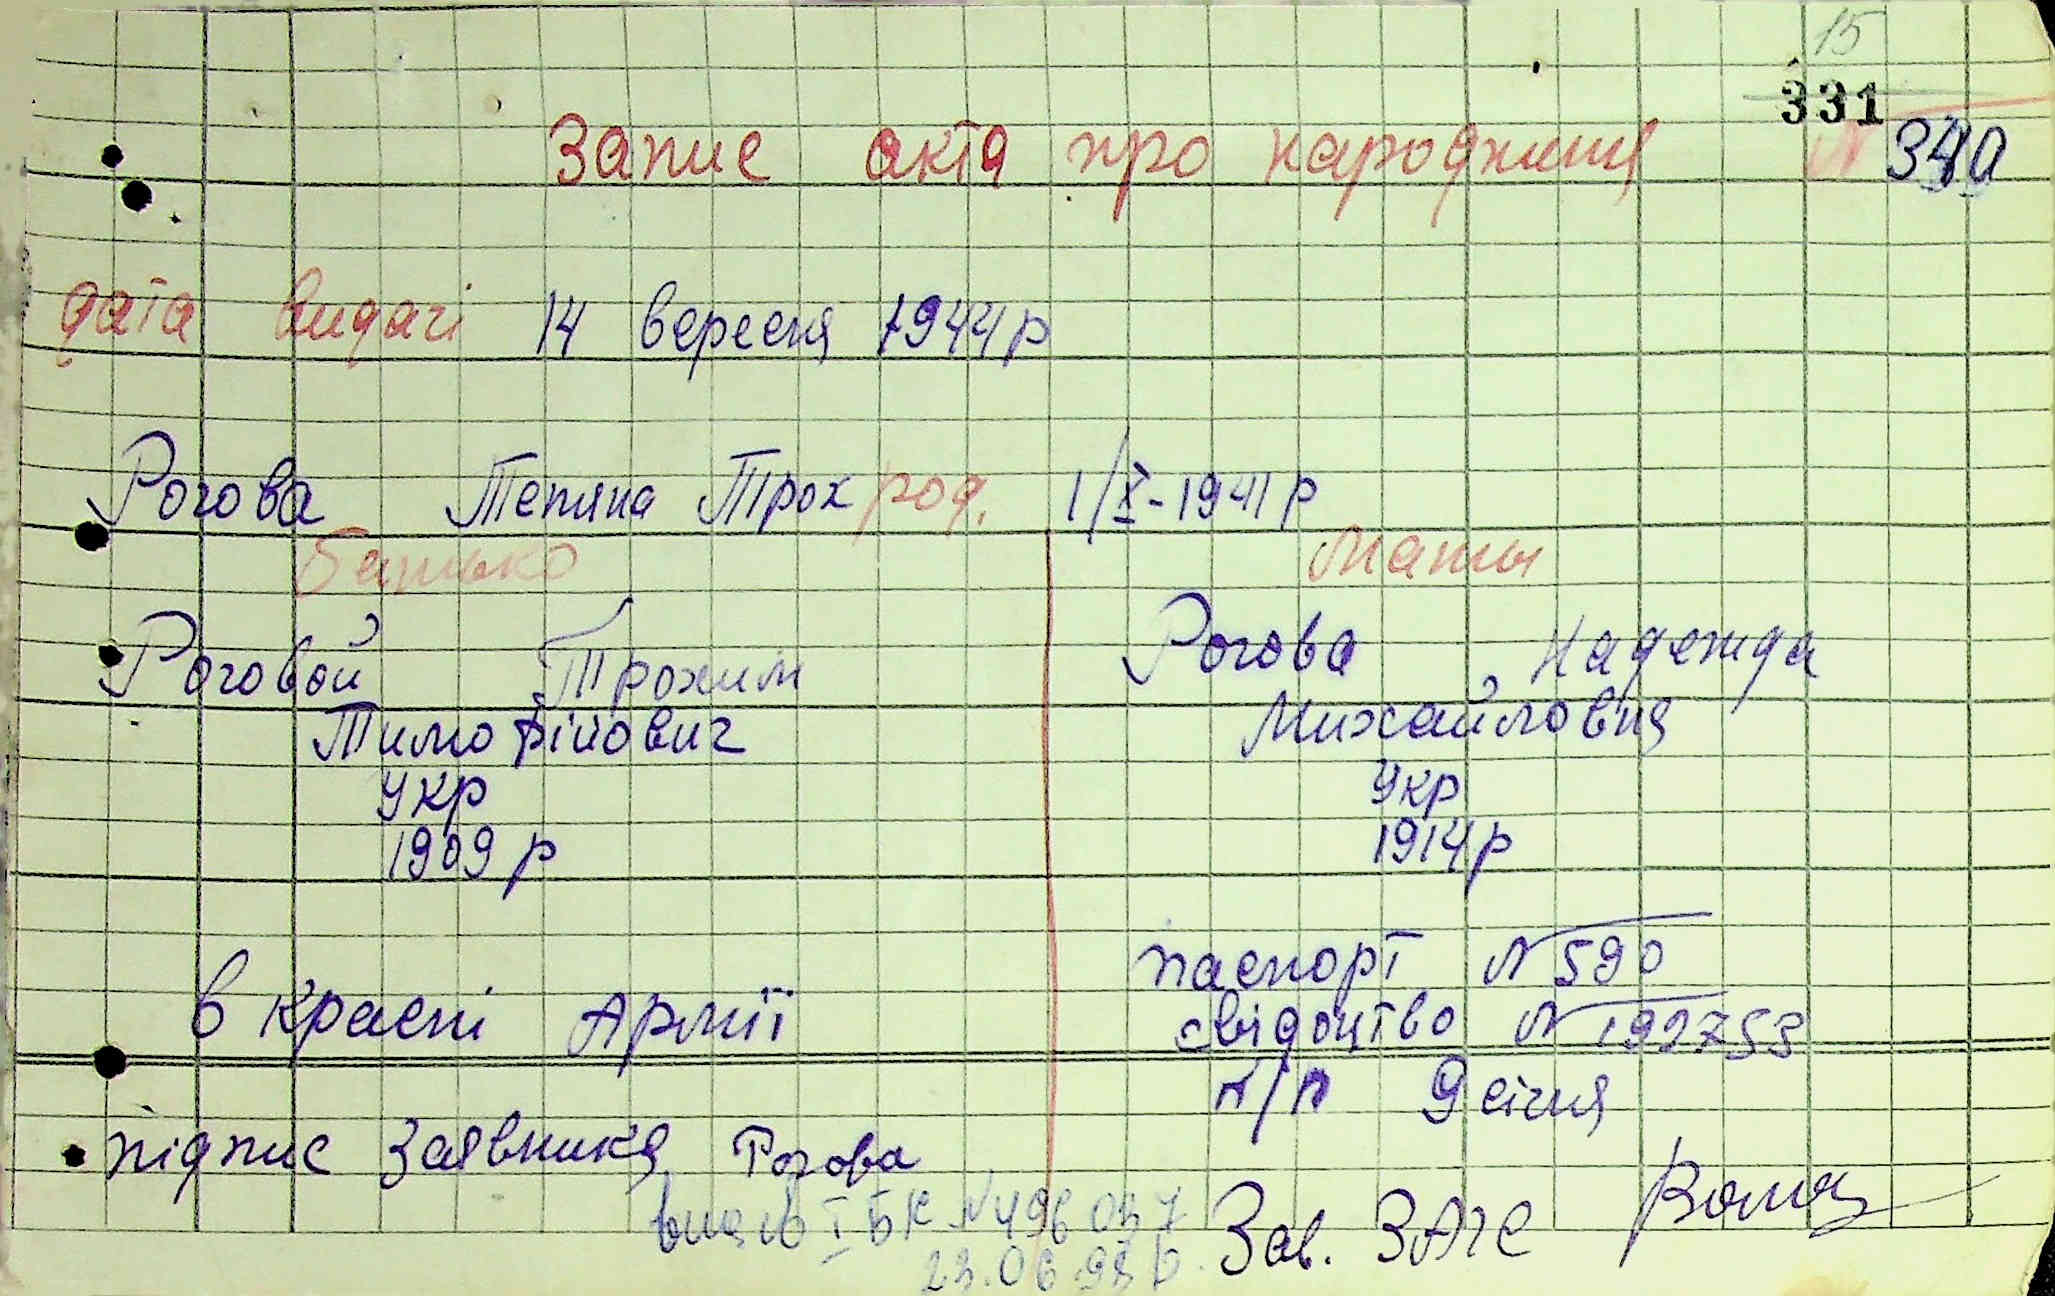 15
331
Запис акта про народження № 340
дата видачі 14 вересня 1944 р
Рогова Тетяна Трох род. 1/X-1941 р
батько Мати
Роговой Трохим
Тимофійович
Укр
1909 р
в красні Армії
Рогова Надежда
Михайловна
Укр
1914 р
паспорт № 590
свідоцтво № 192753
п/п 9 січня
підпис Заявника Рогова
Зав. ЗАГС
I БК № 496 037
23.06.98 р.